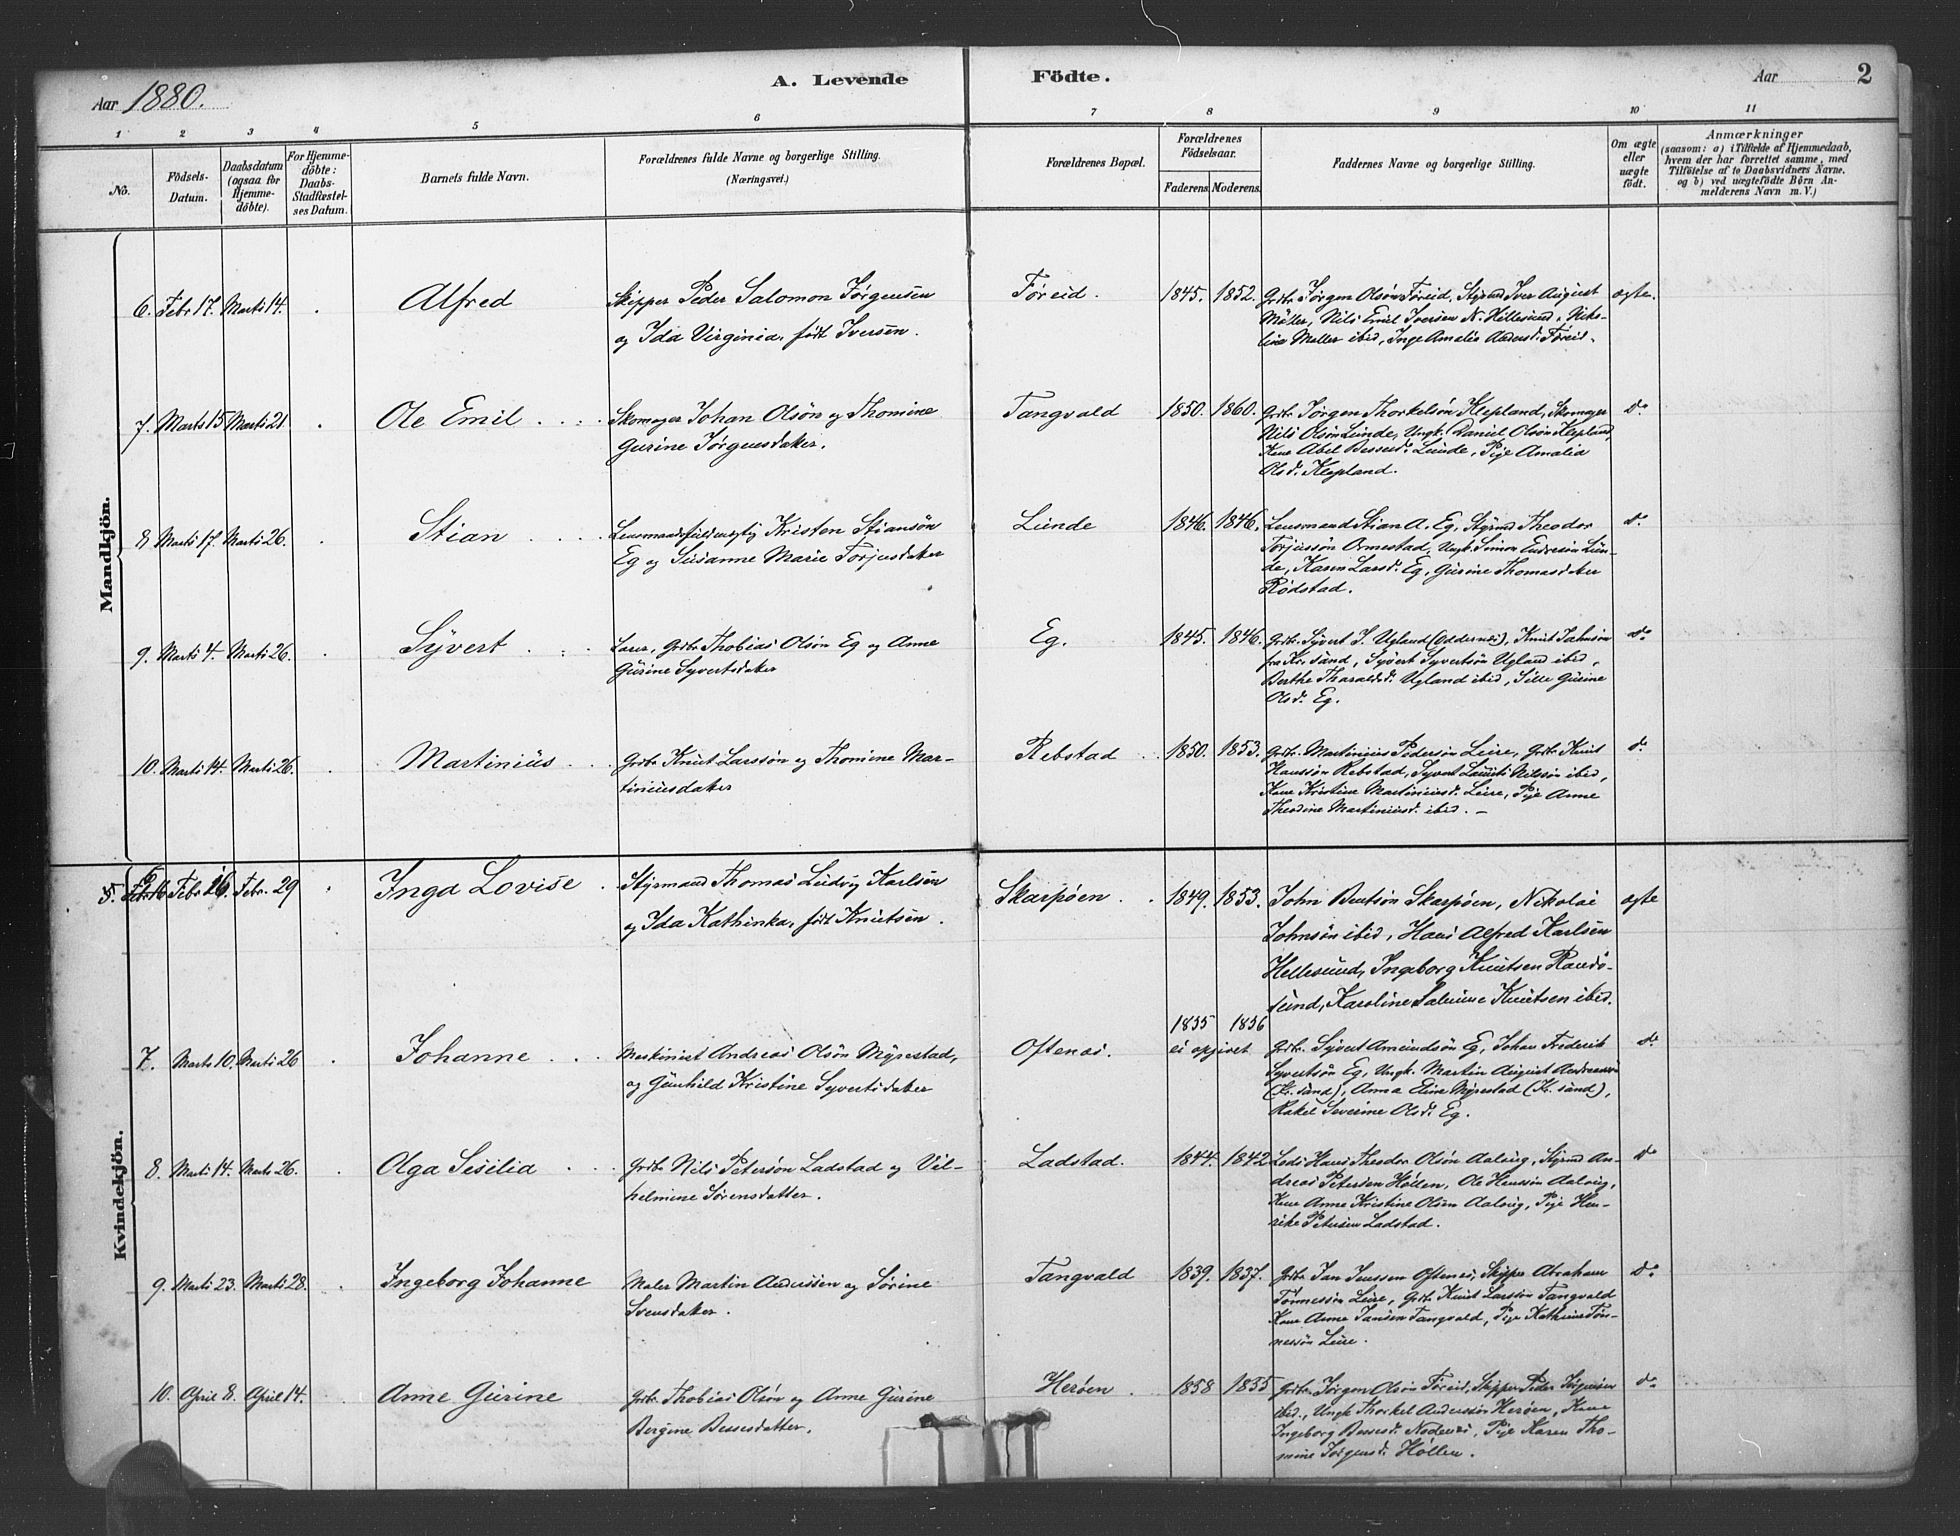 Aar 1880.
A. Levende Födte.
Aar 2
1 2 3 4 5 6 7 8 9 10 11
No.
Födsels-
Datum.
Daabsdatum
(ogsaa for
Hjemme-
döbte).
For Hjemme-
döbte:
Daabs-
Stadfæstel-
ses Datum.
Barnets fulde Navn.
Forældrenes fulde Navne og borgerlige Stilling.
(Næringsvei.)
Forældrenes Bopæl.
Forældrenes
Födselsaar.
Faderens. Moderens.
Faddernes Navne og borgerlige Stilling.
Om ægte
eller
uægte
födt.
Anmærkninger
(saasom: a) i Tilfælde af Hjemmedaab,
hvem der har forrettet samme, med
Tilföielse af to Daabsvidners Navne.
og b) ved uægtefödte Börn An-
melderens Navn m. V.)
Mandkjön.
6. Febr 17. Marts 14. Alfred
Skipper Peder Salomon Jørgensen
og Ida Virginia, født Iversen.
Føreid. 1845. 1852.
Grdbr. Jørgen Olsøn Føreid, Styrmd Iver August
Møller, Nils Emil Iversen N. Hellesund, Niko-
line Møller ibid, Inge Amalie Andersd. Føreid.
ægte.
7. Marts 15 Marts 21 Ole Emil
Skomager Johan Olsøn og Thomine
Gurine Jørgensdater.
Tangvald 1850. 1860.
Grdbr. Jørgen Thorkelsøn Klepland, Skomager
Nils Olsøn Lunde, Ungk. Daniel Olsøn Klepland,
Kone Abel Bessesd. Lunde, Pige Amalia
Olsd. Klepland.
do
8 Marts 17. Marts 26. Stian
Lensmandsfuldmægtig Kristen Stiansøn
Eg og Susanne Marie Torjusdater
Lunde 1846. 1846.
Lensmand Stian A. Eg, Styrmd Theodor
Torjussøn Ormestad, Ungk. Simon Endresøn Lun-
de, Karen Larsd. Eg, Gurine Thomasdater
Rødstad.
do
9. Marts 4. Marts 26. Syvert
Grdbr Thobias Olsøn Eg og Anne
Gurine Syvertsdater
Eg. 1845. 1846.
Grdbr. Syvert S. Ugland (Oddernes), Knut Jahnsøn
fra Kr.sand, Syvert Syvertsøn Ugland ibid,
Berthe Tharaldsd. Ugland ibid, Sille Gurine
Olsd. Eg.
do
10. Marts 14. Marts 26. Martinius
Grdbr Knut Larssøn og Thomine Mar-
tiniusdater
Rebstad 1850. 1853.
Grdbr. Martinius Pedersøn Leire, Grdbr Knut
Hanssøn Rebstad, Syvert Lauritz Nilssøn ibid,
Kone Kristine Martiniusd. Leire, Pige Anne
Theodine Martiniusd. ibid.
do
Kvindekjön.
6 Febr 16. Febr. 29 Inga Lovise
Styrmand Thomas Ludvig Karlsen
og Ida Kathinka, født Knutsen.
Skarpøen. 1849. 1853.
John Bentsøn Skarpøen, Nikolai
Johnsøn ibid, Hans Alfred Karlsen
Hellesund, Ingeborg Knutsen Randø-
sund, Karoline Salume Knutsen ibid.
ægte
7. Marts 10. Marts 26 Johanne
Maskinist Andreas Olsøn Myrestad,
og Gunhild Kristine Syvertsdater
Oftenæs. 1835 1836
ei opgivet
Grdbr. Syvert Amundsøn Eg, Johan Frederik
Syvertsøn Eg, Ungk. Martin August Andreassøn
(Kr. sand), Anna Eline Myrestad (Kr. sand),
Rakel Severine Olsd. Eg.
do
8. Marts 14. Marts 26. Olga Sesilia
Grdbr Nils Petersøn Ladstad og Vil-
helmine Sørensdatter.
Ladstad. 1844. 1842
Lods Hans Theodor Olsøn Aalvig, Styrmd An-
dreas Petersen Høllen, Ole Hanssøn Aalvig,
Kone Anne Kristine Olsen Aalvig, Pige Hen-
rike Petersen Ladstad.
do
9. Marts 23. Marts 28. Ingeborg Johanne
Maler Martin Anderssen og Sørine
Svensdater.
Tangvald 1839. 1837.
Grdbr Jan Jenssen Oftenæs, Skipper Abraham
Tønnessøn Leire, Grdbr Knut Larssøn Tangvald
Kone Anne Jansen Tangvald, Pige Kathrine Tøn-
nessøn Leire.
do
10. April 8. April 14. Anne Gurine
Grdbr Thobias Olsøn og Anne Gurine
Bergine Bessesdatter.
Herøen. 1858 1835
Grdbr. Jørgen Olsøn Føreid, Skipper Peder Jørgensen
ibid., Ungk Thorkel Anderssøn Herøen, Kone
Ingeborg Bessesd. Nodenes, Pige Karen Tho-
mine Jørgensd. Høllen.
do